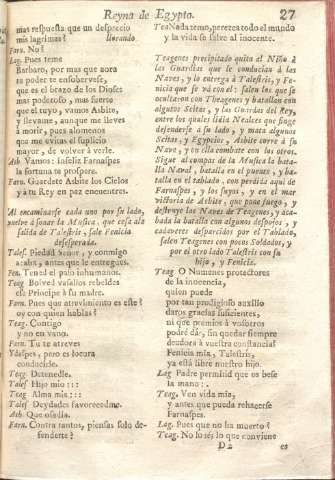 Reyna de Egypto. 27
mas respuesta que un desprecio
mis lagrimas? llorando.
Farn. No?
Lag. Pues teme
Barbaro, por mas que aora
tu poder te ensobervece,
que es el brazo de los Dioses
mas poderoso, mas fuerte
que el tuyo, vamos Asbite,
y llevame, aunque me lleves
à morir, pues alomenos
que me evitas el suplicio
mayor, de volver à verle.
Asb. Vamos: infeliz Farnaspes
la fortuna te prospere.
Farn. Guardete Asbite los Cielos
y à tu Rey en paz encuentres.
Al encaminarse cada uno por su lado,
vuelve à sonar la Musica, que cesa à la
salida de Talestris, sale Fenicia
desesperada.
Talest. Piedad Señor, y conmigo
acaba, antes que le entregues.
Fen. Tened el paso inhumanos.
Teag. Bolved vasallos rebeldes
esa Principe à su madre.
Farn. Pues que atrevimiento es este?
oy con quien hablas?
Teag. Contigo
y no en vano.
Farn. Tu te atreves
Ydaspes, pero es locura
conducirle.
Teag. Detenedle.
Talest. Hijo mio:::
Teag. Alma mia:::
Talest. Deydades favorecedme.
Asb. Que osadia.
Farn. Contra tantos, piensas solo de-
fenderte?
Tea. Nada temo, perezca todo el mundo
y la vida se salve al inocente.
Teagenes precipitado quita el Niño à
las Guardias que se conducian à las
Naves, y lo entrega à Talestris, y Fe-
nicia que se và con él: salen los que se
ocultaron con Theagenes y batallan con
algunos Scitas, y las Guardias del Rey,
entre los quales lidia Nealces que finge
defenderse à su lado, y mata algunos
Scitas, y Egypcios, Asbite corre à su
Nave, y en ella combate con los otros.
Sigue al compas de la Musica la bata-
lla Naval, batalla en el puente, y ba-
talla en el tablado, con perdida aqui de
Farnaspes, y los suyos, y en el mar
victoria de Asbite, que pone fuego, y
destruye las Naves de Teagenes, y aca-
bada la batalla con algunos despojos, y
cadaveres desparcidos por el Tablado,
salen Teagenes con pocos Soldados, y
por el otro lado Talestris con su
hijo, y Fenicia.
Teag. O Numenes protectores
de la inocencia,
quien puede
por tan prodigioso auxilio
daros gracias suficientes,
ni que premios à vosotros
podrè dà-, sin quedar siempre
deudora à vuestra constancia!
Fenicia mia, Talestris,
ya està libre nuestro hijo.
Lag. Padre permitid que os bese
la mano:.
Teag. Ven vida mia,
y antes que pueda rehacerse
Farnaspes.
Lag. Pues que no ha muerto?
Teag. No lo sè; lo que conviene
D 2 es